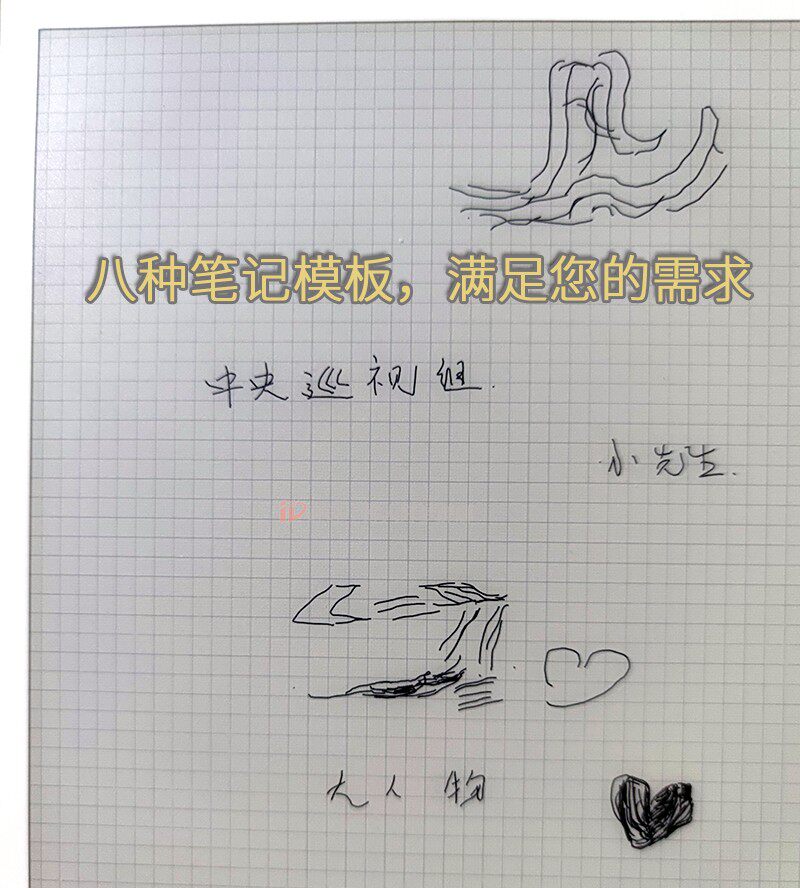 八种笔记模板，满足您的需求
中央巡视组.
小先生.
iD
大人物